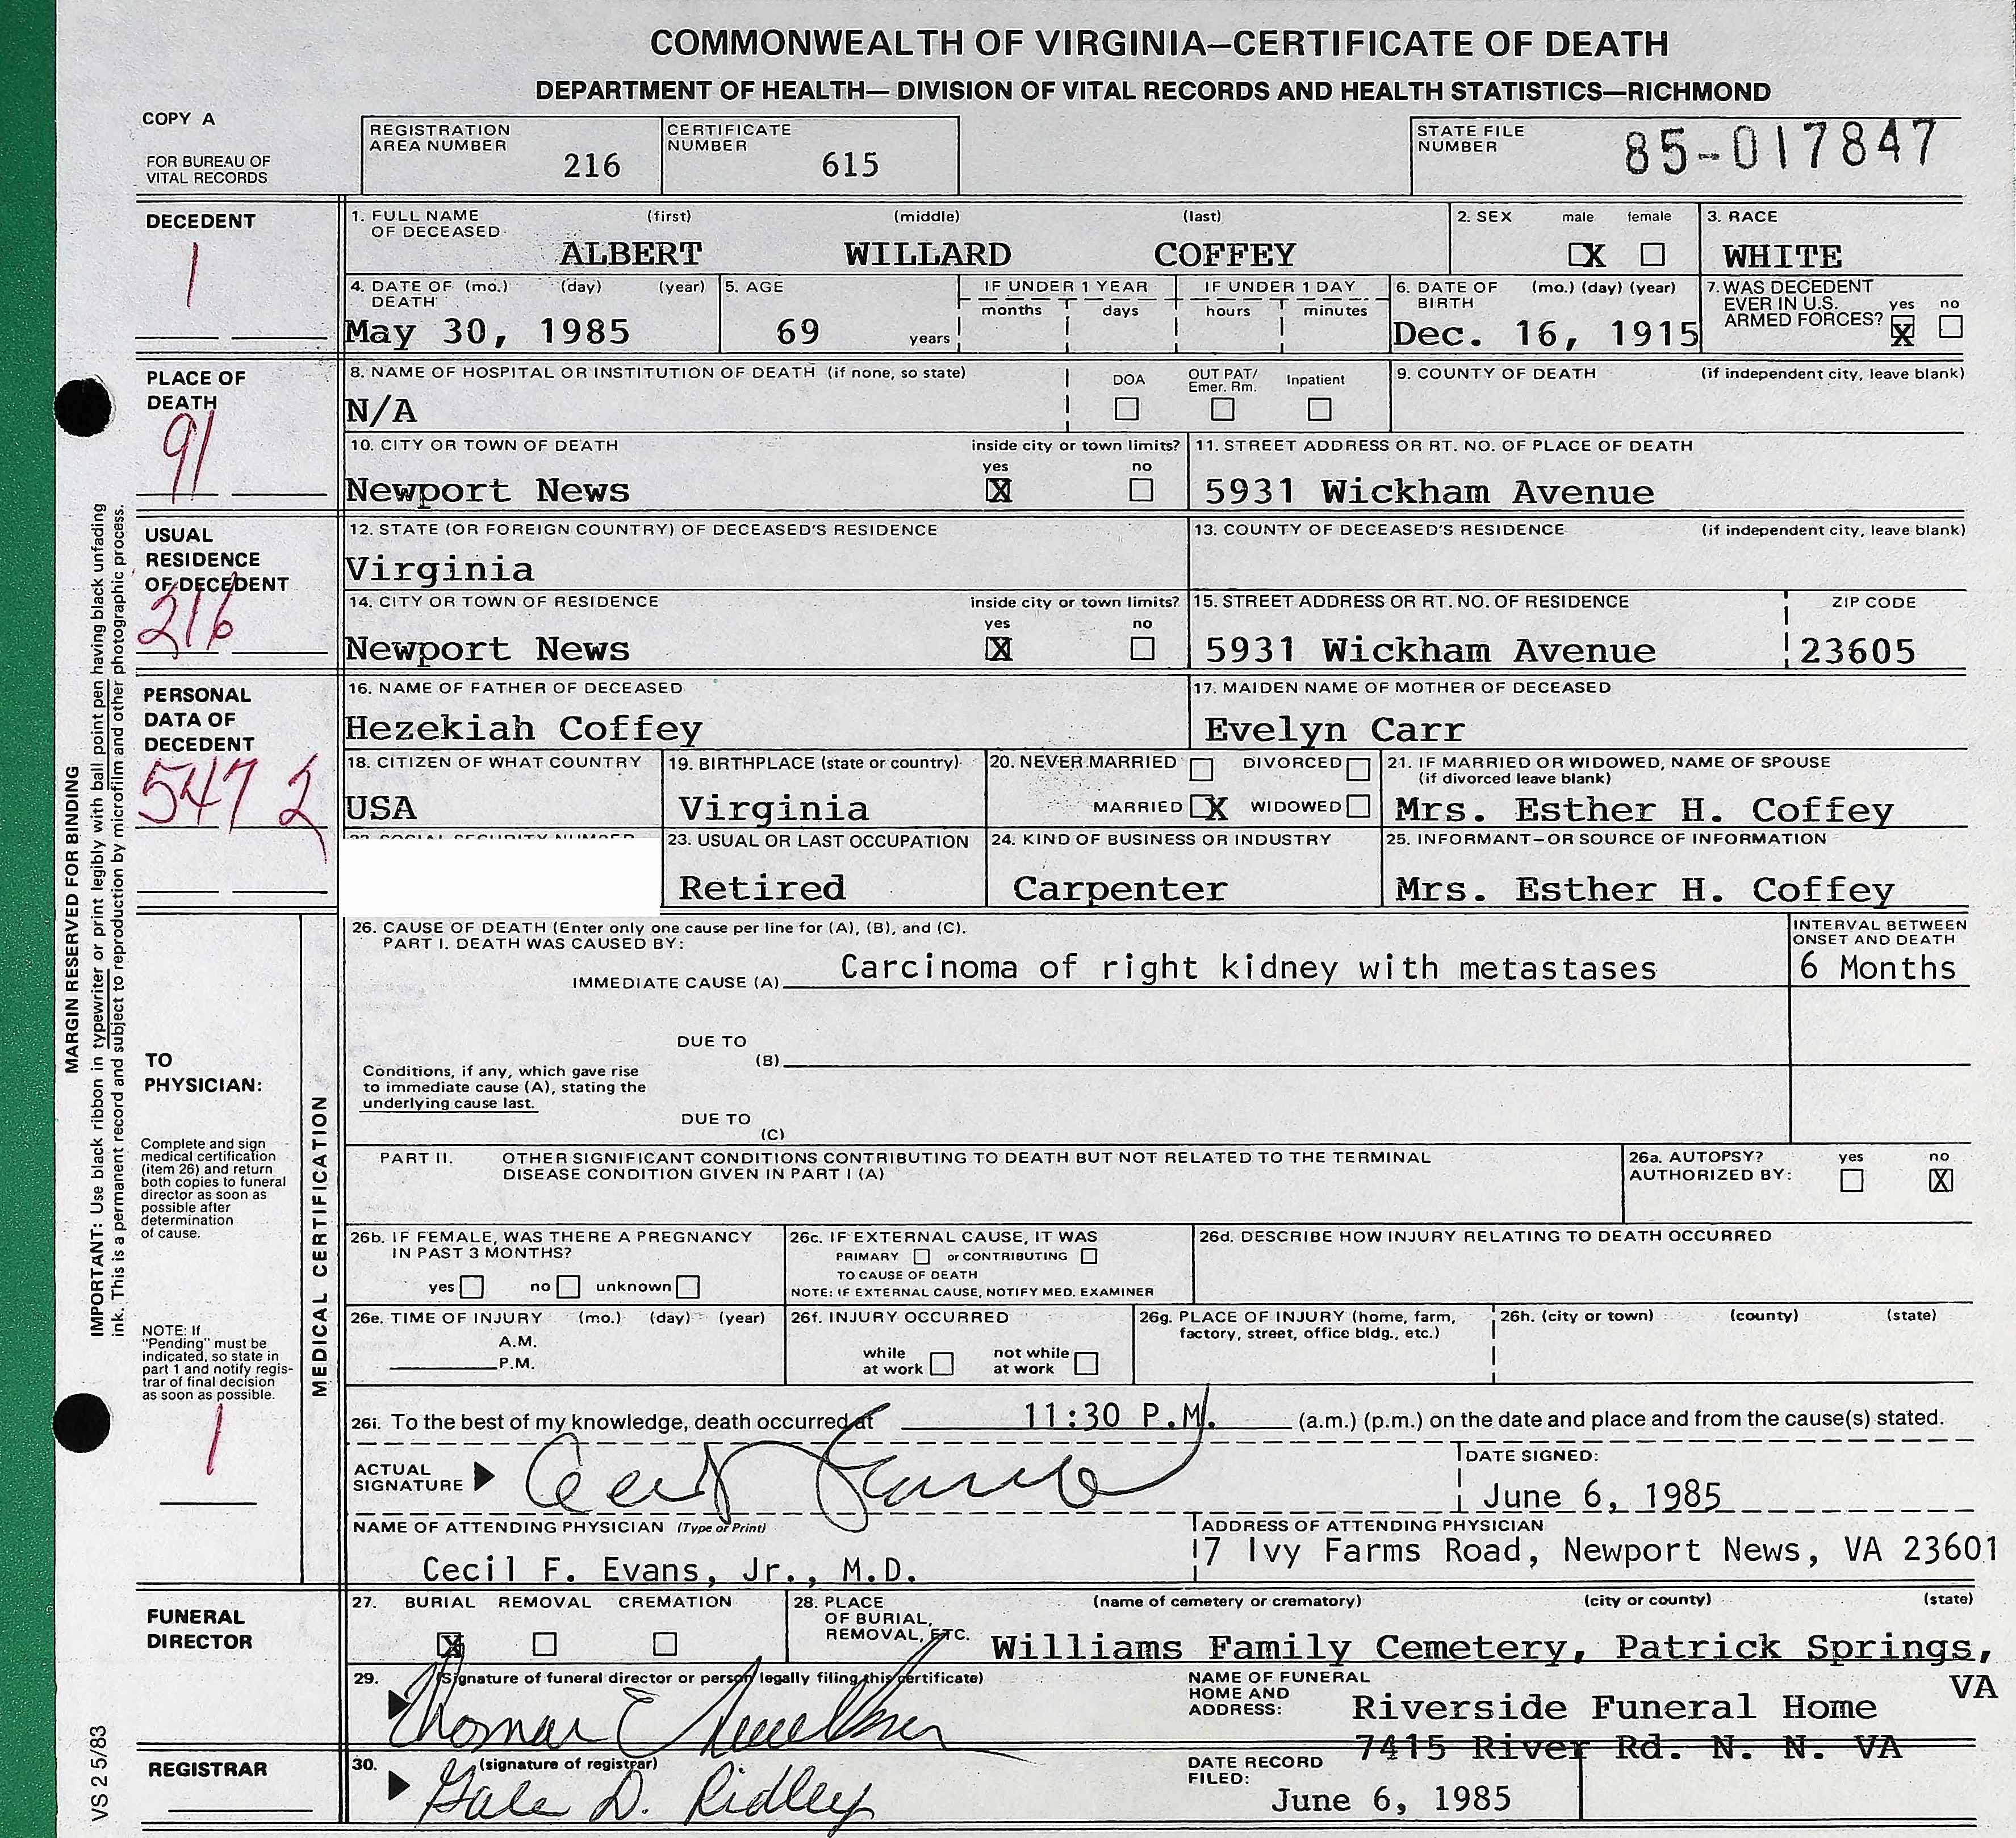 COMMONWEALTH OF VIRGINIA—CERTIFICATE OF DEATH
DEPARTMENT OF HEALTH— DIVISION OF VITAL RECORDS AND HEALTH STATISTICS—RICHMOND
COPY A
FOR BUREAU OF
VITAL RECORDS
REGISTRATION
AREA NUMBER
216
CERTIFICATE
NUMBER
615
STATE FILE
NUMBER
85-017847
DECEDENT
1
1. FULL NAME (first) (middle) (last)
OF DECEASED
ALBERT WILLARD COFFEY
2. SEX male female
X
3. RACE
WHITE
4. DATE OF (mo.) (day) (year)
DEATH
May 30, 1985
5. AGE
69 years
IF UNDER 1 YEAR
months days
IF UNDER 1 DAY
hours minutes
6. DATE OF (mo.) (day) (year)
BIRTH
Dec. 16, 1915
7. WAS DECEDENT
EVER IN U.S. yes no
ARMED FORCES?
X
PLACE OF
DEATH
91
8. NAME OF HOSPITAL OR INSTITUTION OF DEATH (if none, so state)
N/A
DOA OUT PAT/ Inpatient
Emer. Rm.
9. COUNTY OF DEATH (if independent city, leave blank)
10. CITY OR TOWN OF DEATH inside city or town limits?
yes no
Newport News X
11. STREET ADDRESS OR RT. NO. OF PLACE OF DEATH
5931 Wickham Avenue
USUAL
RESIDENCE
OF DECEDENT
216
12. STATE (OR FOREIGN COUNTRY) OF DECEASED'S RESIDENCE
Virginia
13. COUNTY OF DECEASED'S RESIDENCE (if independent city, leave blank)
14. CITY OR TOWN OF RESIDENCE inside city or town limits?
yes no
Newport News X
15. STREET ADDRESS OR RT. NO. OF RESIDENCE ZIP CODE
5931 Wickham Avenue 23605
PERSONAL
DATA OF
DECEDENT
547 2
16. NAME OF FATHER OF DECEASED
Hezekiah Coffey
17. MAIDEN NAME OF MOTHER OF DECEASED
Evelyn Carr
18. CITIZEN OF WHAT COUNTRY
USA
19. BIRTHPLACE (state or country)
Virginia
20. NEVER MARRIED DIVORCED
MARRIED X WIDOWED
21. IF MARRIED OR WIDOWED, NAME OF SPOUSE
(if divorced leave blank)
Mrs. Esther H. Coffey
22. SOCIAL SECURITY NUMBER
23. USUAL OR LAST OCCUPATION
Retired
24. KIND OF BUSINESS OR INDUSTRY
Carpenter
25. INFORMANT—OR SOURCE OF INFORMATION
Mrs. Esther H. Coffey
MARGIN RESERVED FOR BINDING
IMPORTANT: Use black ribbon in typewriter or print legibly with ball point pen having black unfading
ink. This is a permanent record and subject to reproduction by microfilm and other photographic process.
VS 2 5/83
MEDICAL CERTIFICATION
TO
PHYSICIAN:
Complete and sign
medical certification
(item 26) and return
both copies to funeral
director as soon as
possible after
determination
of cause.
NOTE: If
"Pending" must be
indicated, so state in
part 1 and notify regis-
trar of final decision
as soon as possible.
1
26. CAUSE OF DEATH (Enter only one cause per line for (A), (B), and (C).
PART I. DEATH WAS CAUSED BY:
IMMEDIATE CAUSE (A) Carcinoma of right kidney with metastases
INTERVAL BETWEEN
ONSET AND DEATH
6 Months
DUE TO
(B)
Conditions, if any, which gave rise
to immediate cause (A), stating the
underlying cause last.
DUE TO
(C)
PART II. OTHER SIGNIFICANT CONDITIONS CONTRIBUTING TO DEATH BUT NOT RELATED TO THE TERMINAL
DISEASE CONDITION GIVEN IN PART I (A)
26a. AUTOPSY? yes no
AUTHORIZED BY: X
26b. IF FEMALE, WAS THERE A PREGNANCY
IN PAST 3 MONTHS?
yes no unknown
26c. IF EXTERNAL CAUSE, IT WAS
PRIMARY or CONTRIBUTING
TO CAUSE OF DEATH
NOTE: IF EXTERNAL CAUSE, NOTIFY MED. EXAMINER
26d. DESCRIBE HOW INJURY RELATING TO DEATH OCCURRED
26e. TIME OF INJURY (mo.) (day) (year)
A.M.
P.M.
26f. INJURY OCCURRED
while not while
at work at work
26g. PLACE OF INJURY (home, farm,
factory, street, office bldg., etc.)
26h. (city or town) (county) (state)
26i. To the best of my knowledge, death occurred at 11:30 P.M. (a.m.) (p.m.) on the date and place and from the cause(s) stated.
ACTUAL
SIGNATURE
DATE SIGNED:
June 6, 1985
NAME OF ATTENDING PHYSICIAN (Type or Print)
Cecil F. Evans, Jr., M.D.
ADDRESS OF ATTENDING PHYSICIAN
17 Ivy Farms Road, Newport News, VA 23601
FUNERAL
DIRECTOR
27. BURIAL REMOVAL CREMATION
X
28. PLACE (name of cemetery or crematory) (city or county) (state)
OF BURIAL,
REMOVAL, ETC.
Williams Family Cemetery, Patrick Springs,
VA
29. (Signature of funeral director or person legally filing this certificate)
Thomas E
NAME OF FUNERAL
HOME AND
ADDRESS:
Riverside Funeral Home
7415 River Rd. N. N. VA
REGISTRAR
30. (signature of registrar)
Gale D. Ridley
DATE RECORD
FILED:
June 6, 1985